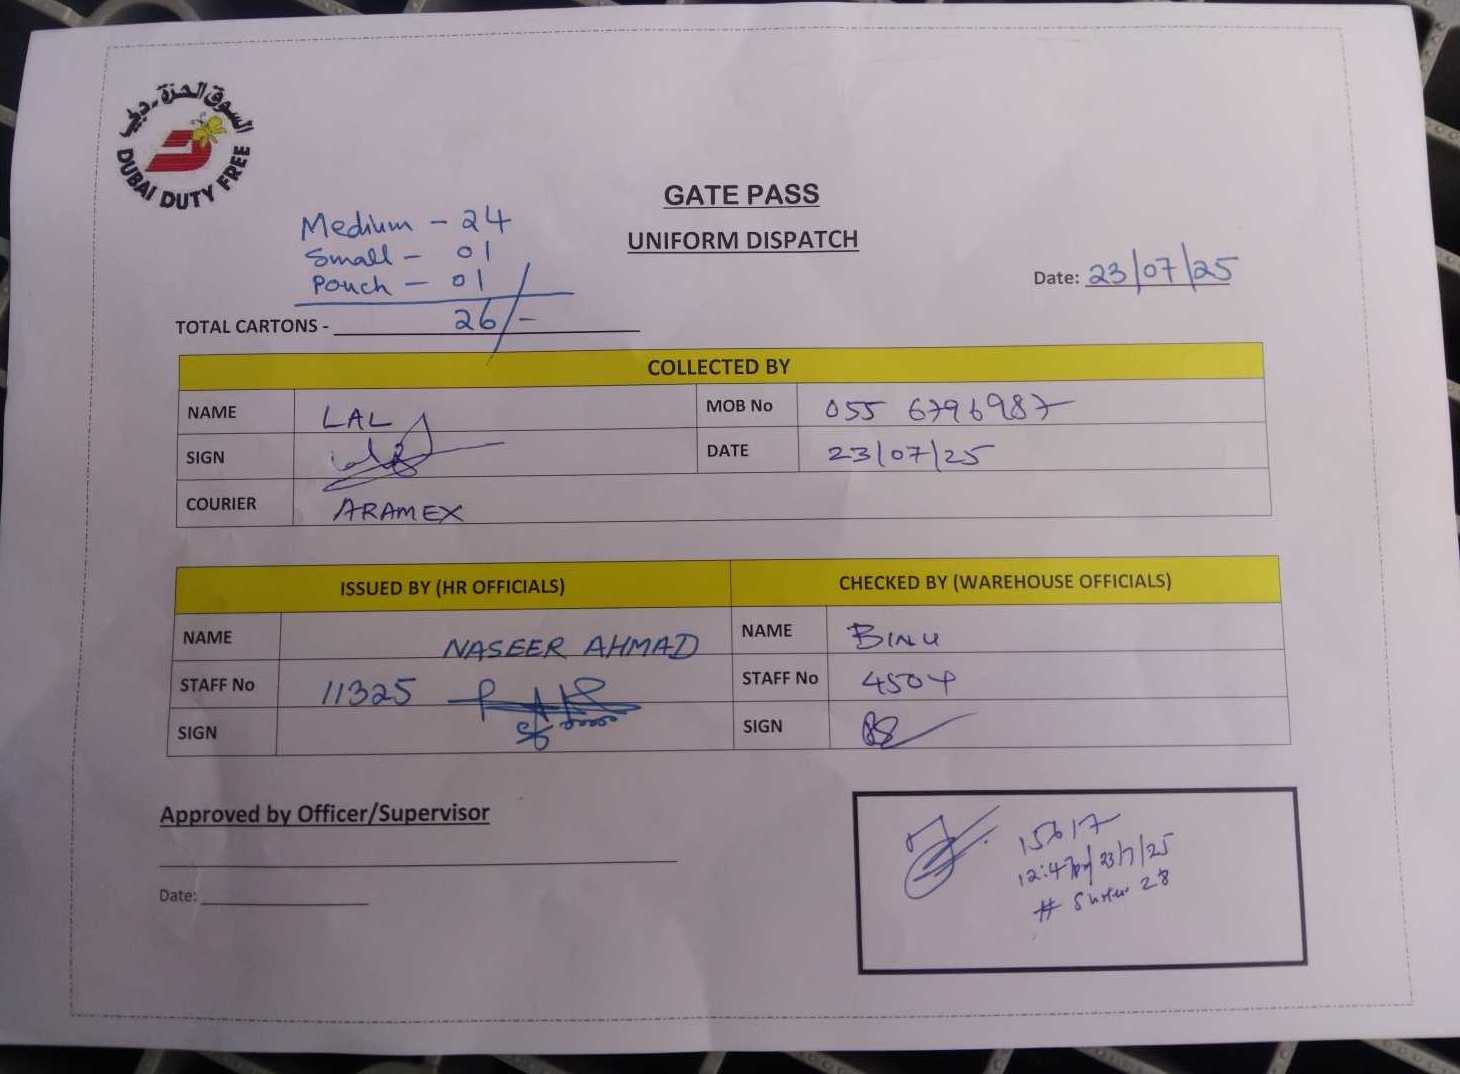 السوق الحرة - دبي
DUBAI DUTY FREE
GATE PASS
UNIFORM DISPATCH
Medium - 24
Small - 01
Pouch - 01
Date: 23/07/25
TOTAL CARTONS - 26/-
COLLECTED BY
NAME LAL MOB No 055 6796987
SIGN DATE 23/07/25
COURIER ARAMEX
ISSUED BY (HR OFFICIALS) CHECKED BY (WAREHOUSE OFFICIALS)
NAME NASEER AHMAD NAME BINU
STAFF No 11325 STAFF No 4504
SIGN SIGN
Approved by Officer/Supervisor
Date:
15617
12:47 23/7/25
# 28